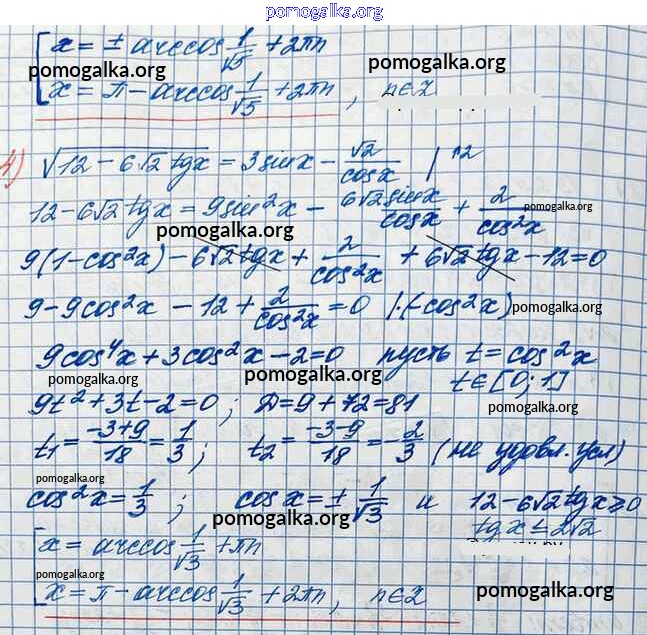 pomogalka.org
x = ± arccos 1/√5 + 2πn
pomogalka.org
pomogalka.org
x = π - arccos 1/√5 + 2πn, n∈Z
4) √(12 - 6√2 tgx) = 3 sinx - √2/cosx | ↑2
12 - 6√2 tgx = 9sin²x - 6√2 sinx/cosx + 2/cos²x
pomogalka.org
pomogalka.org
9(1-cos²x) - 6√2 tgx + 2/cos²x + 6√2 tgx - 12 = 0
9 - 9cos²x - 12 + 2/cos²x = 0 |·(-cos²x)
pomogalka.org
9cos⁴x + 3cos²x - 2 = 0 пусть t = cos²x
pomogalka.org
pomogalka.org
t∈[0;1]
9t² + 3t - 2 = 0; D = 9 + 72 = 81
pomogalka.org
t1 = (-3+9)/18 = 1/3; t2 = (-3-9)/18 = -2/3 (не удовл. усл)
pomogalka.org
cos²x = 1/3; cosx = ± 1/√3 и 12 - 6√2 tgx ≥ 0
pomogalka.org
tgx ≤ √2
x = arccos 1/√3 + πn
pomogalka.org
pomogalka.org
x = π - arccos 1/√3 + 2πn, n∈Z